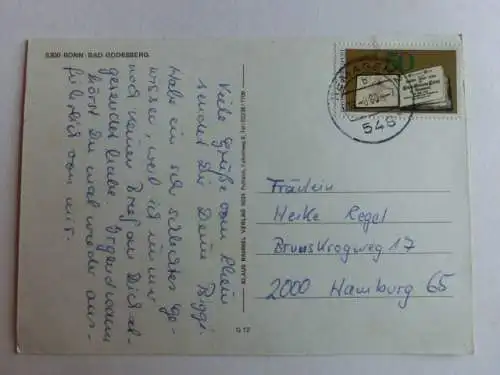 5300 BONN - BAD GODESBERG
Viele Grüße vom Rhein
sendet Dir Deine Biggi.
Habe ein sehr schlechtes Ge-
wissen, weil ich immer
noch keinen Brief an Dich ab-
gesendet habe. Irgendwann
hörst Du mal wieder aus-
führlich von mir.
KLAUS RIMMEL VERLAG
G 12
50
546
Fräulein
Heike Regel
Brunskrogweg 17
2000 Hamburg 65